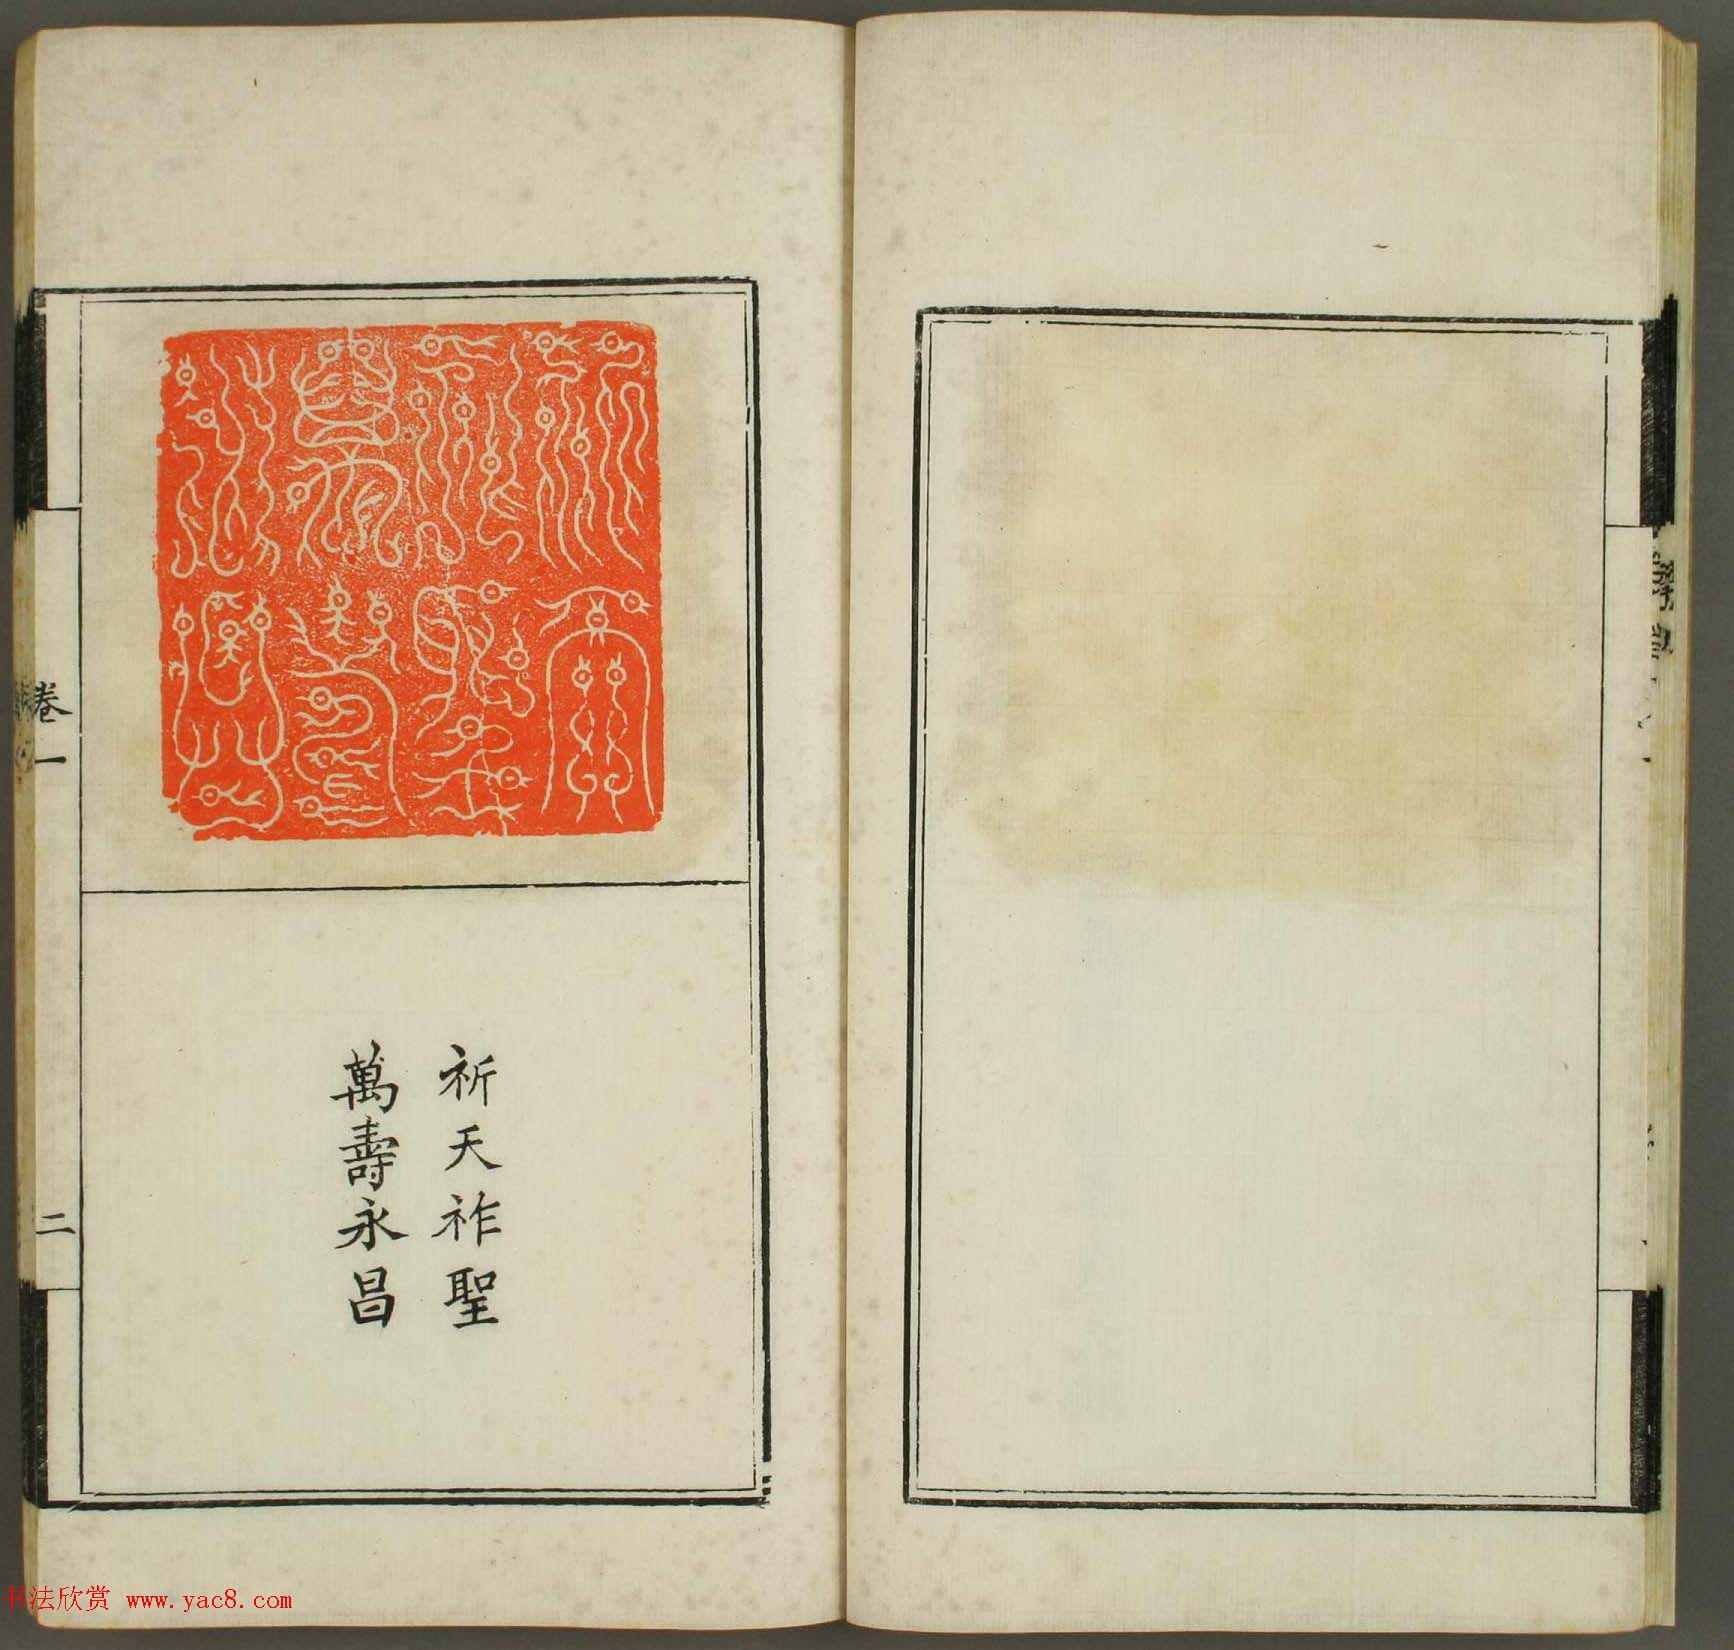 祈天祚聖
萬壽永昌
卷一
二
书法欣赏 www.yac8.com